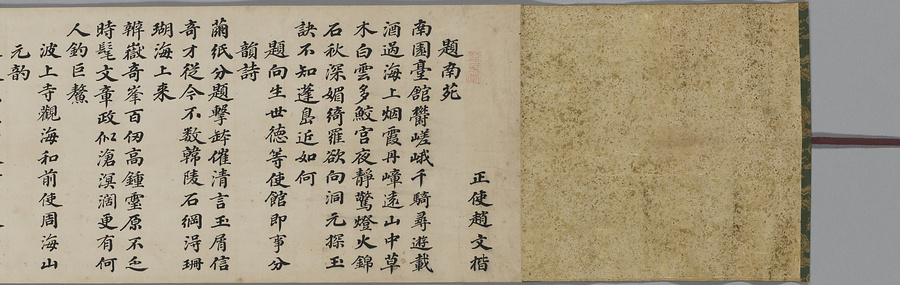 題南苑
正使趙文楷
南園臺館欝嵯峨千騎尋遊載
酒過海上烟霞丹嶂遠山中草
木白雲多鮫宮夜靜驚燈火錦
石秋深媚綺羅欲向洞元探玉
訣不知蓬島近如何
題向生世德等使館即事分
韻詩
繭紙分題擊鉢催清言玉屑信
奇才從今不數韓陵石網淂珊
瑚海上來
辨嶽奇峯百仞高鍾靈原不乏
時髦文章政似滄溟濶更有何
人釣巨鰲
波上寺觀海和前使周海山
元韵